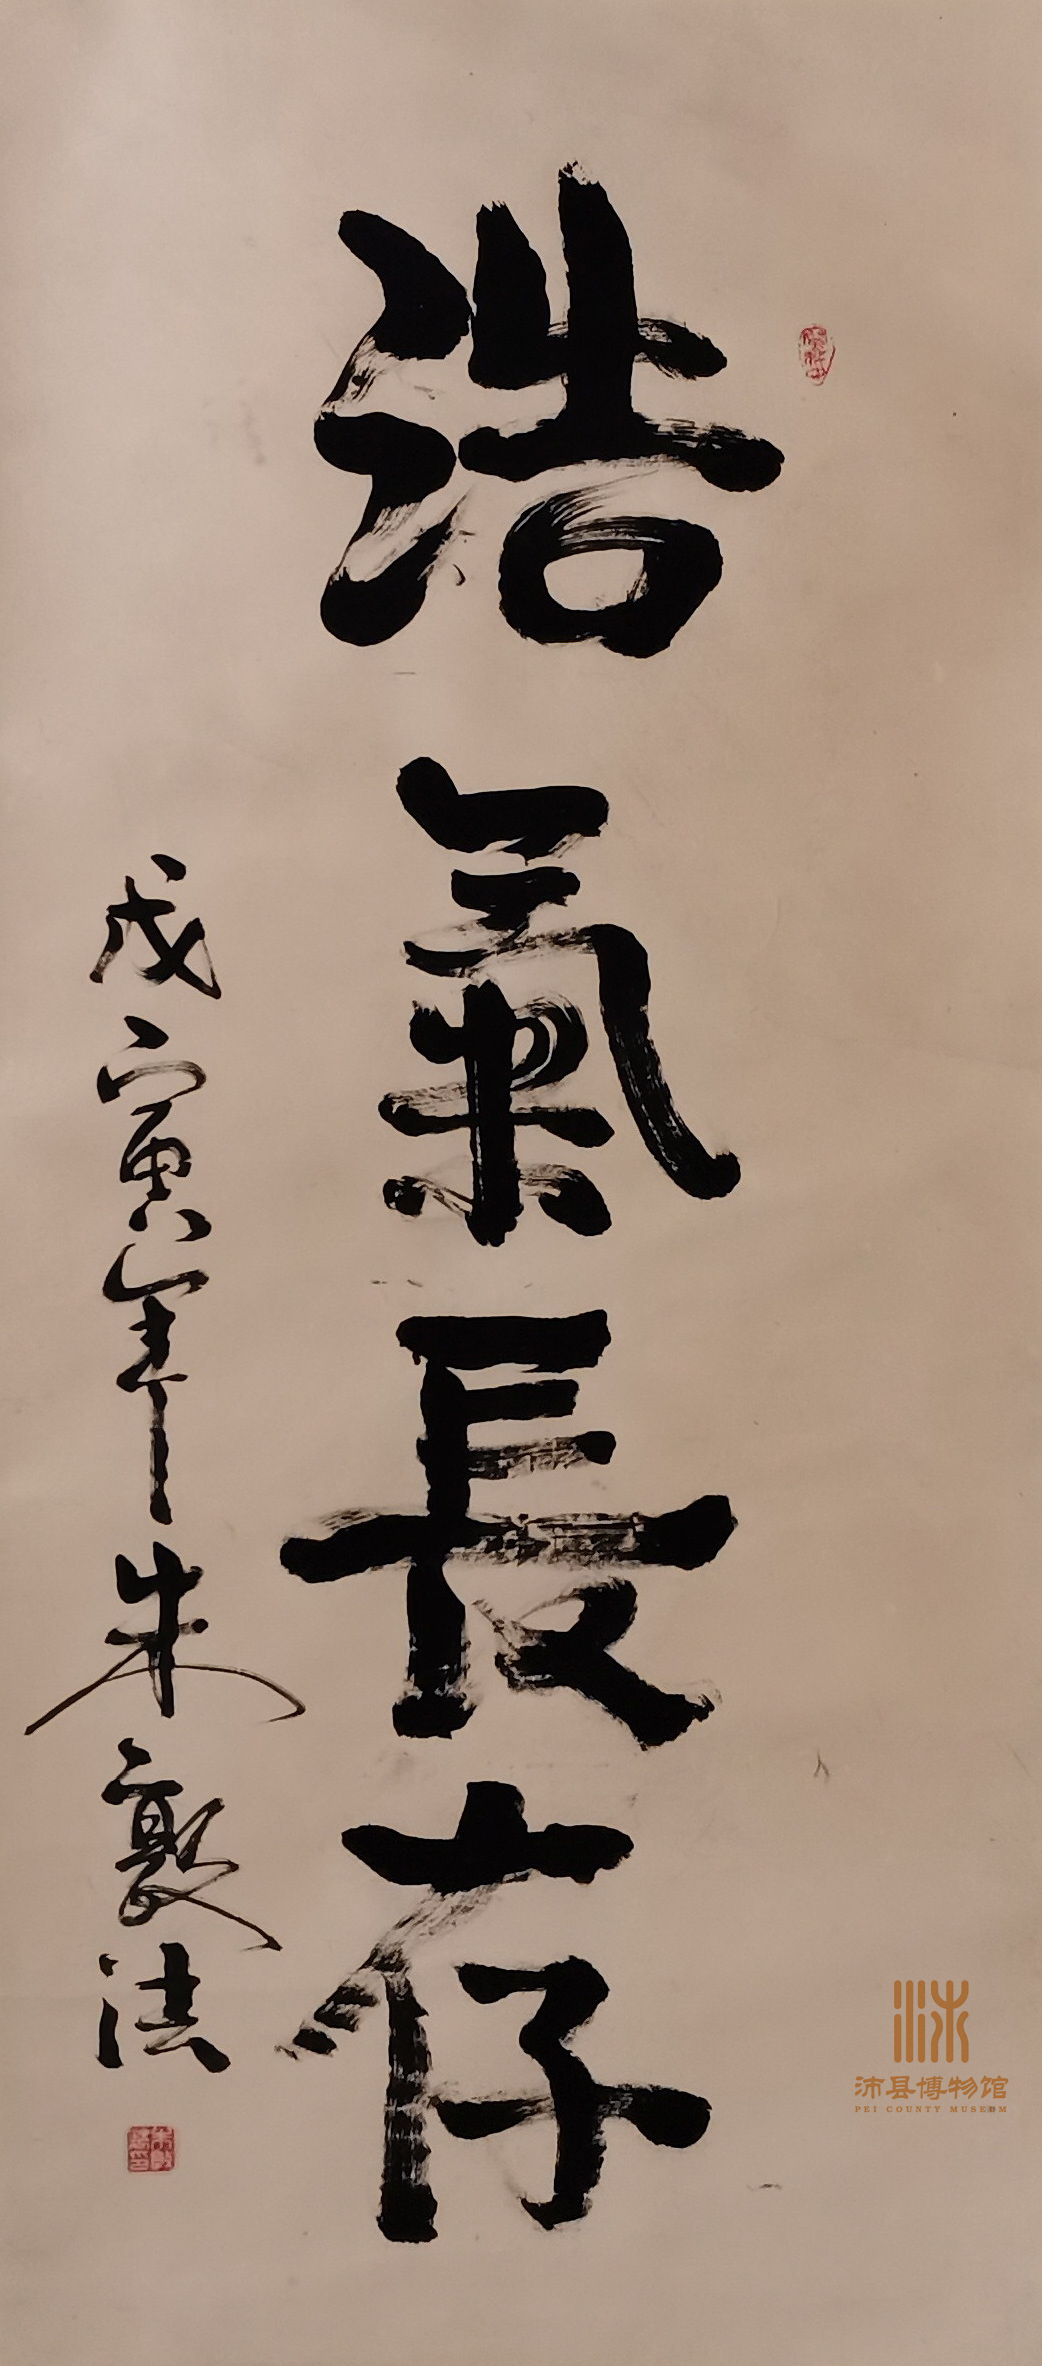 浩氣長存
戊寅年朱敦法
沛县博物馆
PEI COUNTY MUSEUM